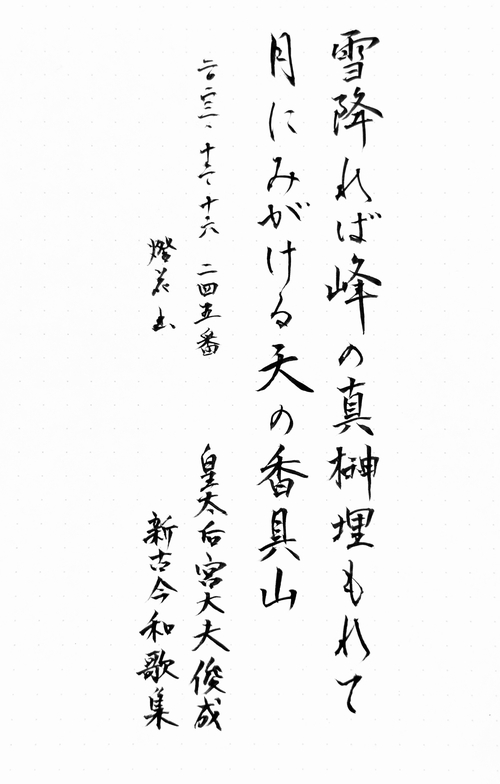 雪降れば峰の真榊埋もれて
月にみがける天の香具山
二〇二三、十二、十六 二四五番
皇太后宮大夫俊成
新古今和歌集